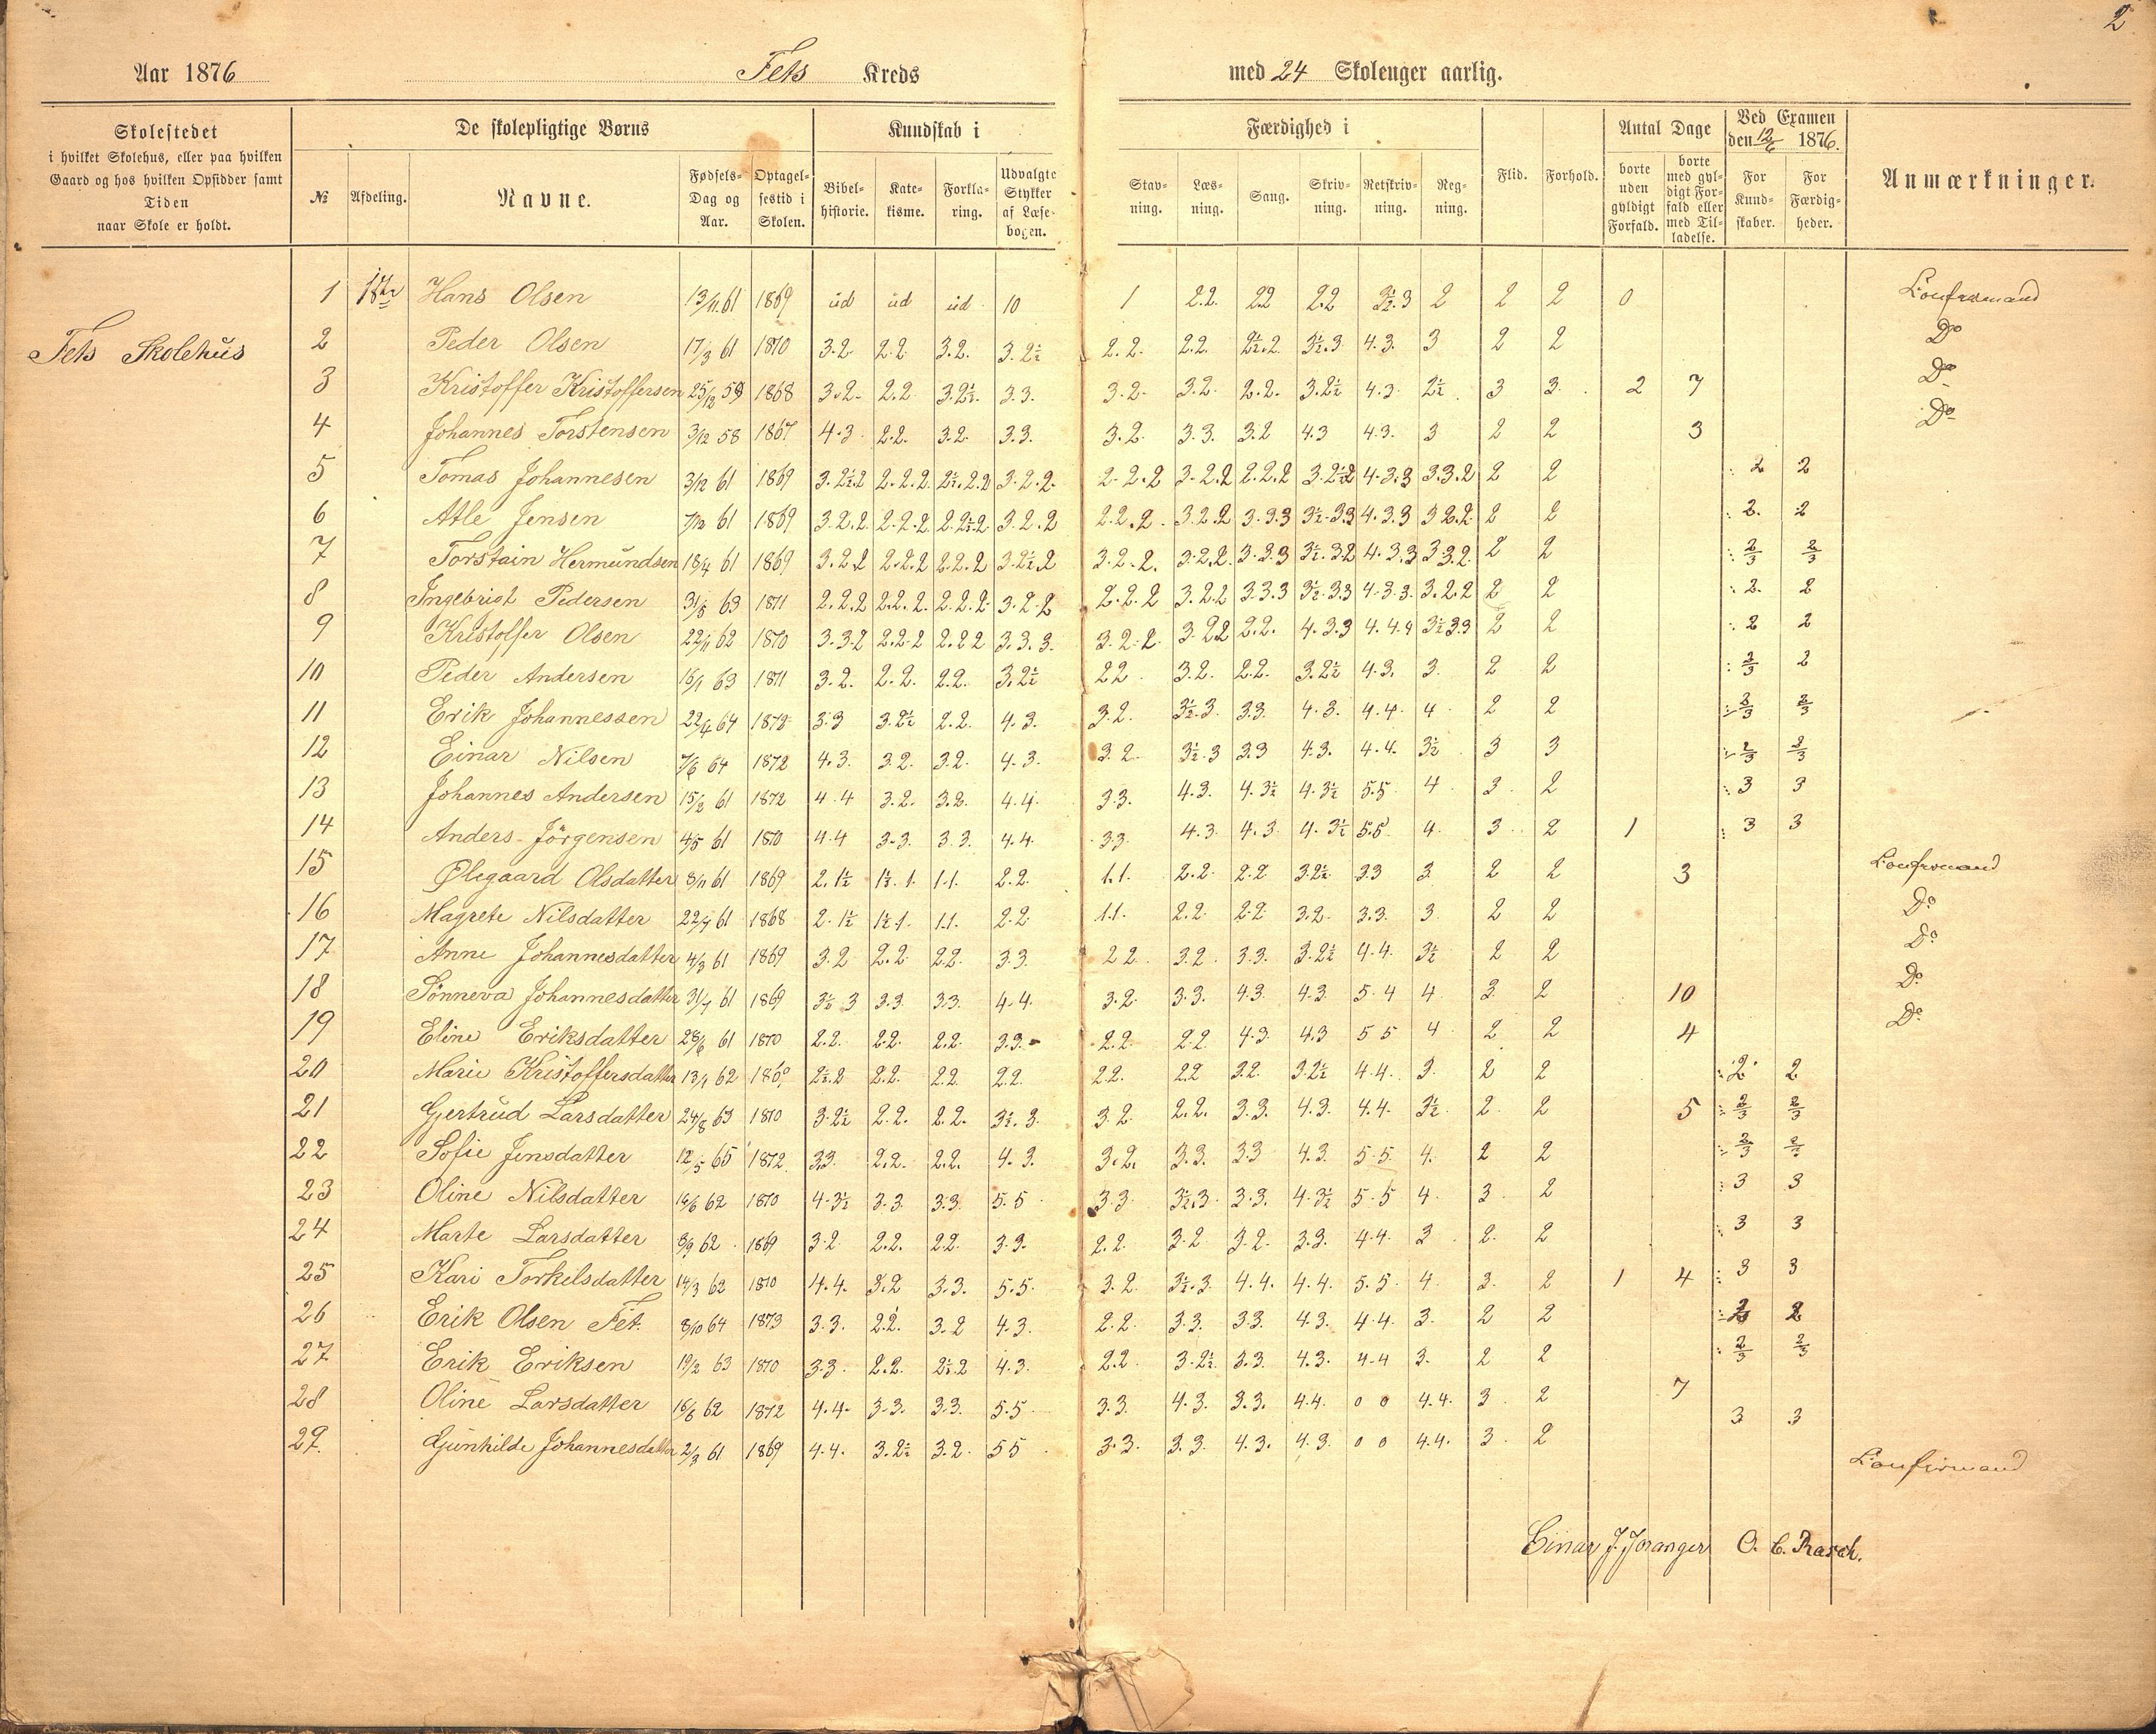 2
Aar 1876 Fets Kreds med 24 Skoleuger aarlig.
Skolestedet
i hvilket Skolehus, eller paa hvilken
Gaard og hos hvilken Opsidder samt
Tiden
naar Skole er holdt.
De skolepligtige Børns
№ Afdeling. Navne. Fødsels-Dag og Aar. Optagel-sestid i Skolen.
Kundskab i
Bibel-historie. Kate-kisme. Forkla-ring. Udvalgte Stykker af Læse-bogen.
Færdighed i
Stav-ning. Læs-ning. Sang. Skriv-ning. Retskriv-ning. Reg-ning.
Flid. Forhold.
Antal Dage
borte uden gyldigt Forfald. borte med gyl-digt For-fald eller med Til-ladelse.
Ved Examen
den 12/6 1876.
For Kund-skaber. For Færdig-heder.
Anmærkninger.
Fets Skolehus
1 Hans Olsen 13/11 61 1869 ud ud ud 10 1 2.2. 2.2 2.2 3½.3 2 2 2 0 Confirmand
2 Peder Olsen 17/3 61 1870 3.2. 2.2. 3.2. 3.2½ 2.2. 2.2. 2½.2 3½.3 4.3. 3 2 2 Do
3 Kristoffer Kristoffersen 25/12 59 1868 3.2. 2.2 3.2½. 3.3. 3.2. 3.2. 2.2. 3.2½ 4.3. 2½ 3 3. 2 7 Do
4 Johannes Torstensen 3/12 58 1867 4.3 2.2. 3.2. 3.3. 3.2. 3.3. 3.2 4.3 4.3. 3 2 2 3 Do
5 Tomas Johannesen 3/12 61 1869 3.2½.2 2.2.2 2½.2.2 3.2.2. 2.2.2 3.2.2 2.2.2 3.2½.2 4.3.3 3.3.2 2 2 2 2
6 Atle Jensen 7/12 61 1869 3.2.2 2.2.2 2.2½.2 3.2.2 2.2.2. 3.2.2 3.3.3 3½.3.3 4.3.3 3 2.2 2 2 2. 2
7 Torstain Hermundsen 18/4 61 1869 3.2.2 2.2.2 2.2.2 3.2½.2 3.2.2. 3.2.2. 3.3.3 3½.3.2 4.3.3 3.3.2 2 2 2/3 2/3
8 Ingebrigt Pedersen 31/5 63 1871 2.2.2 2.2.2. 2.2.2 3.2.2 2.2.2 3.2.2 3.3.3 3½.3.3 4.3.3. 3.2.2 2 2 2. 2
9 Kristoffer Olsen 22/11 62 1870 3.3.2 2.2.2 2.2.2 3.3.3. 3.2.2. 3.2.2 2.2. 4.3.3 4.4.4 3½.3.3 2 2 2 2
10 Peder Andersen 16/1 63 1871 3.2. 2.2. 2.2. 3.2½ 2 2. 3.2. 2.2. 3.2½ 4.3. 3. 2 2 2/3 2
11 Erik Johannessen 22/4 64 1872 3.3 3.2½ 2.2. 4.3. 3.2. 3½.3. 3.3. 4.3. 4.4. 4. 2 2 3/3 2/3
12 Einar Nilsen 7/6 64 1872 4.3. 3.2. 3.2. 4.3. 3.2. 3½.3 3.3 4.3. 4.4. 3½ 3 3 2/3 2/3
13 Johannes Andersen 15/2 61 1872 4.4 3.2. 3.2. 4.4. 3.3. 4.3. 4.3½ 4.3½ 5.5 4 3. 2 3 3
14 Anders Jörgensen 4/5 61 1870 4.4 3.3. 3.3. 4.4. 3.3. 4.3. 4.3 4.3½ 5.5 4. 3. 2 1 3 3
15 Olegaard Olsdatter 8/11 61 1869 2.1½ 1½.1. 1.1. 2.2. 1.1. 2.2. 2.2. 3.2½ 3.3 3 2 2 3 Confirmand
16 Magrete Nilsdatter 22/4 61 1868 2.1½ 1½.1. 1.1. 2.2. 1.1. 2.2. 2.2 3.2. 3.3. 3 2 2 Do
17 Anne Johannesdatter 4/3 61 1869 3.2 2.2 2.2. 3.3. 2.2. 3.2. 3.3. 3.2½ 4.4. 3½ 2 2 Do
18 Sönneva Johannesdatter 31/4 61 1869 3½.3 3.3. 3.3. 4.4. 3.2. 3.3. 4.3. 4.3 5.4 4. 3. 2 10 Do
19 Eline Eriksdatter 28/6 61 1870 2.2. 2.2. 2.2. 3.3. 2.2. 2.2. 4.3 4.3 5 5 4 2 2 4 Do
20 Marie Kristoffersdatter 13/1 62 2½.2 2.2. 2.2 2.2. 2.2. 2.2 3.2. 3.2½ 4.4. 3. 2 2 2 2
21 Gertrud Larsdatter 24/8 63 1870 3.2½ 2.2. 2.2. 3½.3. 3.2. 2.2. 3.3. 4.3. 4.4. 3½ 2. 2 5 2/3 2/3
22 Sofie Jensdatter 12/5 65 1872. 3.3. 2.2. 2.2. 4.3. 3.2. 3.3. 3.3 4.3. 5.5. 4. 2 2 2/3
23 Oline Nilsdatter 62 1870 4.3½ 3.3. 3.3. 5.5 3.3. 3½.3. 3.3. 4.3½ 5.5 4. 3. 2 3 3
24 Marte Larsdatter 8/9 62 1869 3.2 2.2. 2.2. 3.3. 2.2. 3.2 3.2. 3.3. 4.4. 3. 2. 2 3 3
25 Kari Torkilsdatter 14/3 62 1870 4.4. 3.2 3.3. 5.5. 3.2. 3½.3 4.4. 4.4. 5.5. 4. 3. 2 1 4 3 3
26 Erik Olsen Fet. 8/10 64 1873 3.3. 2.2. 3.2 4.3. 2.2. 3.3. 3.3. 4.3. 4.4. 3. 2 2 2
27 Erik Eriksen 19/2 63 1870 3.3. 2.2. 2½.2 4.3. 2.2. 3.2½ 3.3. 4.3. 4.4 3. 2 2 2/3 2/3
28 Oline Larsdatter 16/6 62 1872 4.4. 3.3. 3.3. 5.5 3.3. 4.3. 3.3. 4.4. 0 0 4.4. 3. 2 7 3 3
29. Gunhilde Johannesdatter 2/3 61 1869 4.4. 3.2½ 3.2. 5 5 3.3. 3.3. 4.3. 4.3. 0 0 4.4. 3. 2 Confirmand
Einar J. Joranger O. C. Rasch.